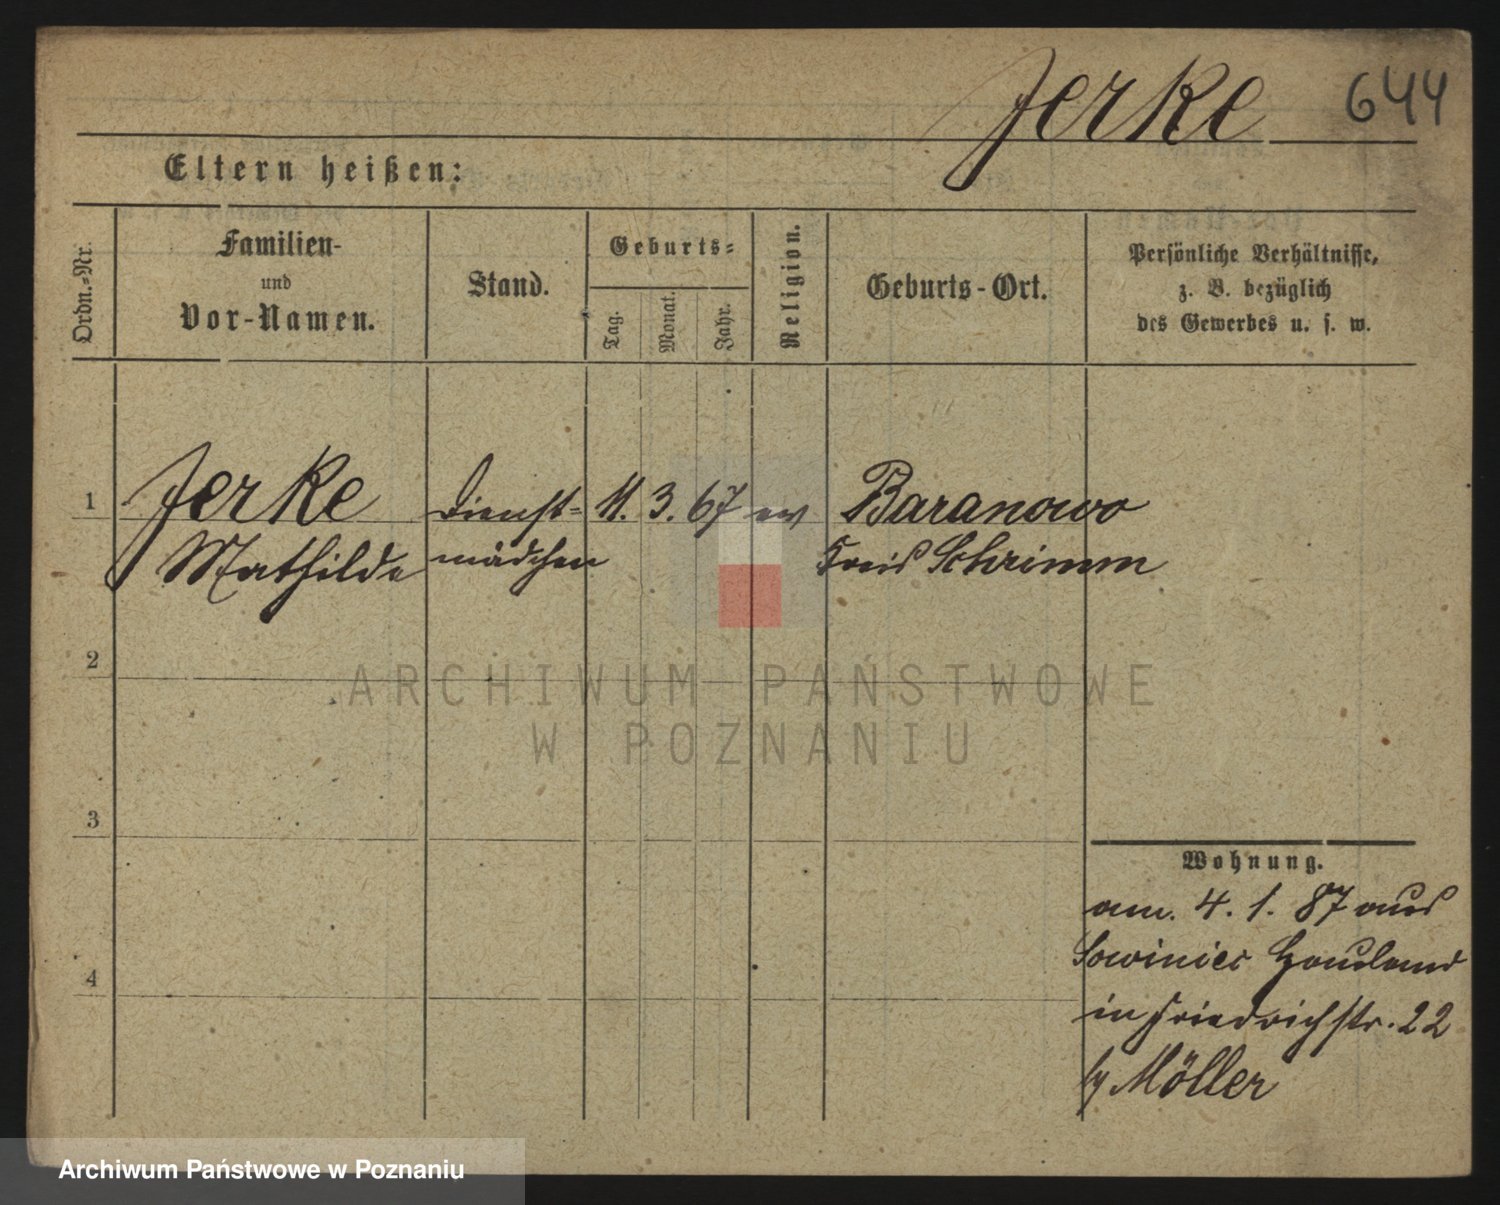 Jerke 644
Eltern heißen:
Ordn.-Nr.
Familien-
und
Vor-Namen.
Stand.
Geburts-
Tag.
Monat.
Jahr.
Religion.
Geburts-Ort.
Persönliche Verhältnisse,
z. B. bezüglich
des Gewerbes u. s. w.
1 Jerke Dienst- 11. 3. 67 ev Baranowo
Mathilde mädchen Kreis Schrimm
2
ARCHIWUM PAŃSTWOWE
W POZNANIU
3
Wohnung.
am. 4. 1. 87 aus
Sowiniec Hauland
4
in Friedrichstr. 22
Möller
Archiwum Państwowe w Poznaniu